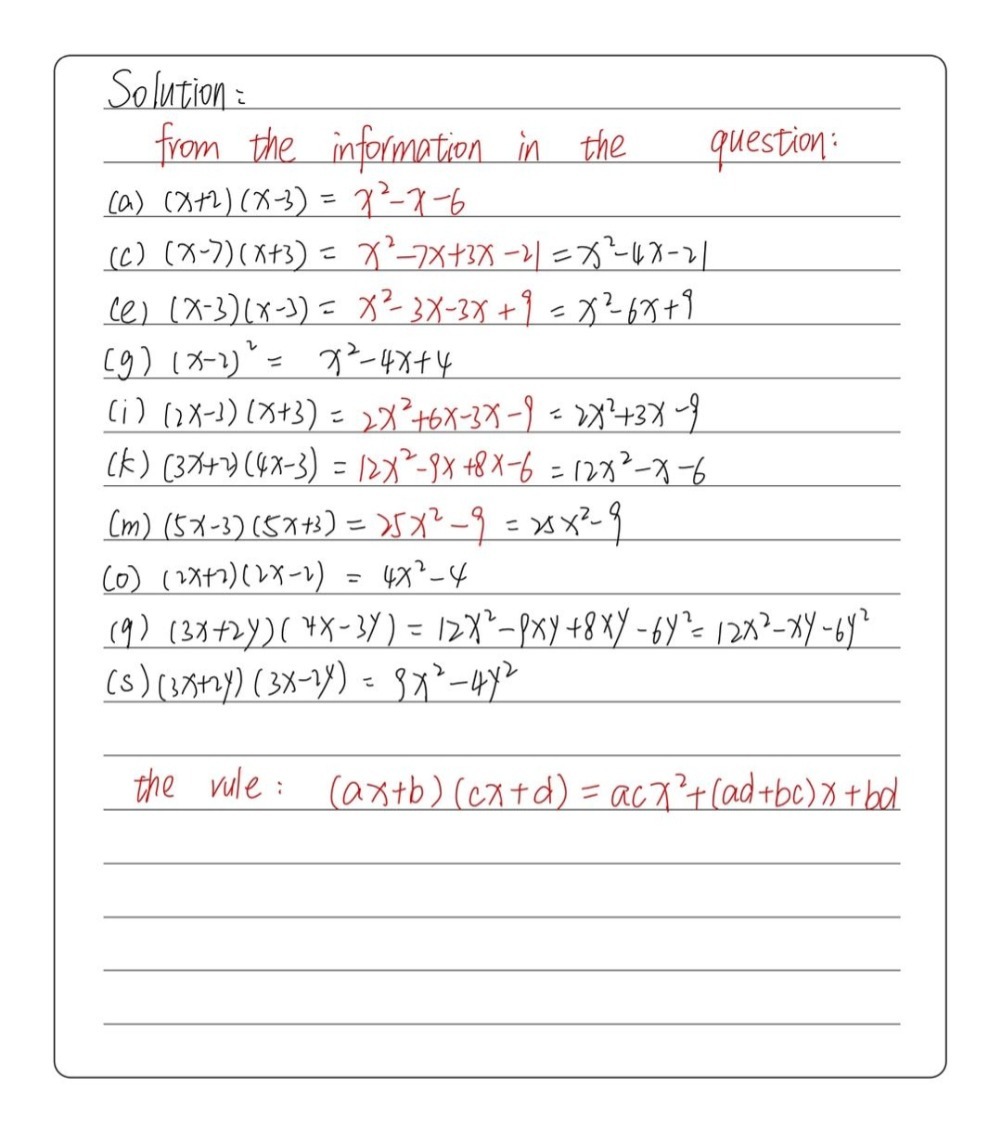 Solution:
from the information in the question:
(a) (x+2)(x-3) = x²-x-6
(c) (x-7)(x+3) = x²-7x+3x-21 = x²-4x-21
(e) (x-3)(x-3) = x²-3x-3x+9 = x²-6x+9
(g) (x-2)² = x²-4x+4
(i) (2x-3)(x+3) = 2x²+6x-3x-9 = 2x²+3x-9
(k) (3x+2)(4x-3) = 12x²-9x+8x-6 = 12x²-x-6
(m) (5x-3)(5x+3) = 25x²-9 = 25x²-9
(o) (2x+2)(2x-2) = 4x²-4
(q) (3x+2y)(4x-3y) = 12x²-9xy+8xy-6y² = 12x²-xy-6y²
(s) (3x+2y)(3x-2y) = 9x²-4y²
the rule: (ax+b)(cx+d) = acx²+(ad+bc)x+bd